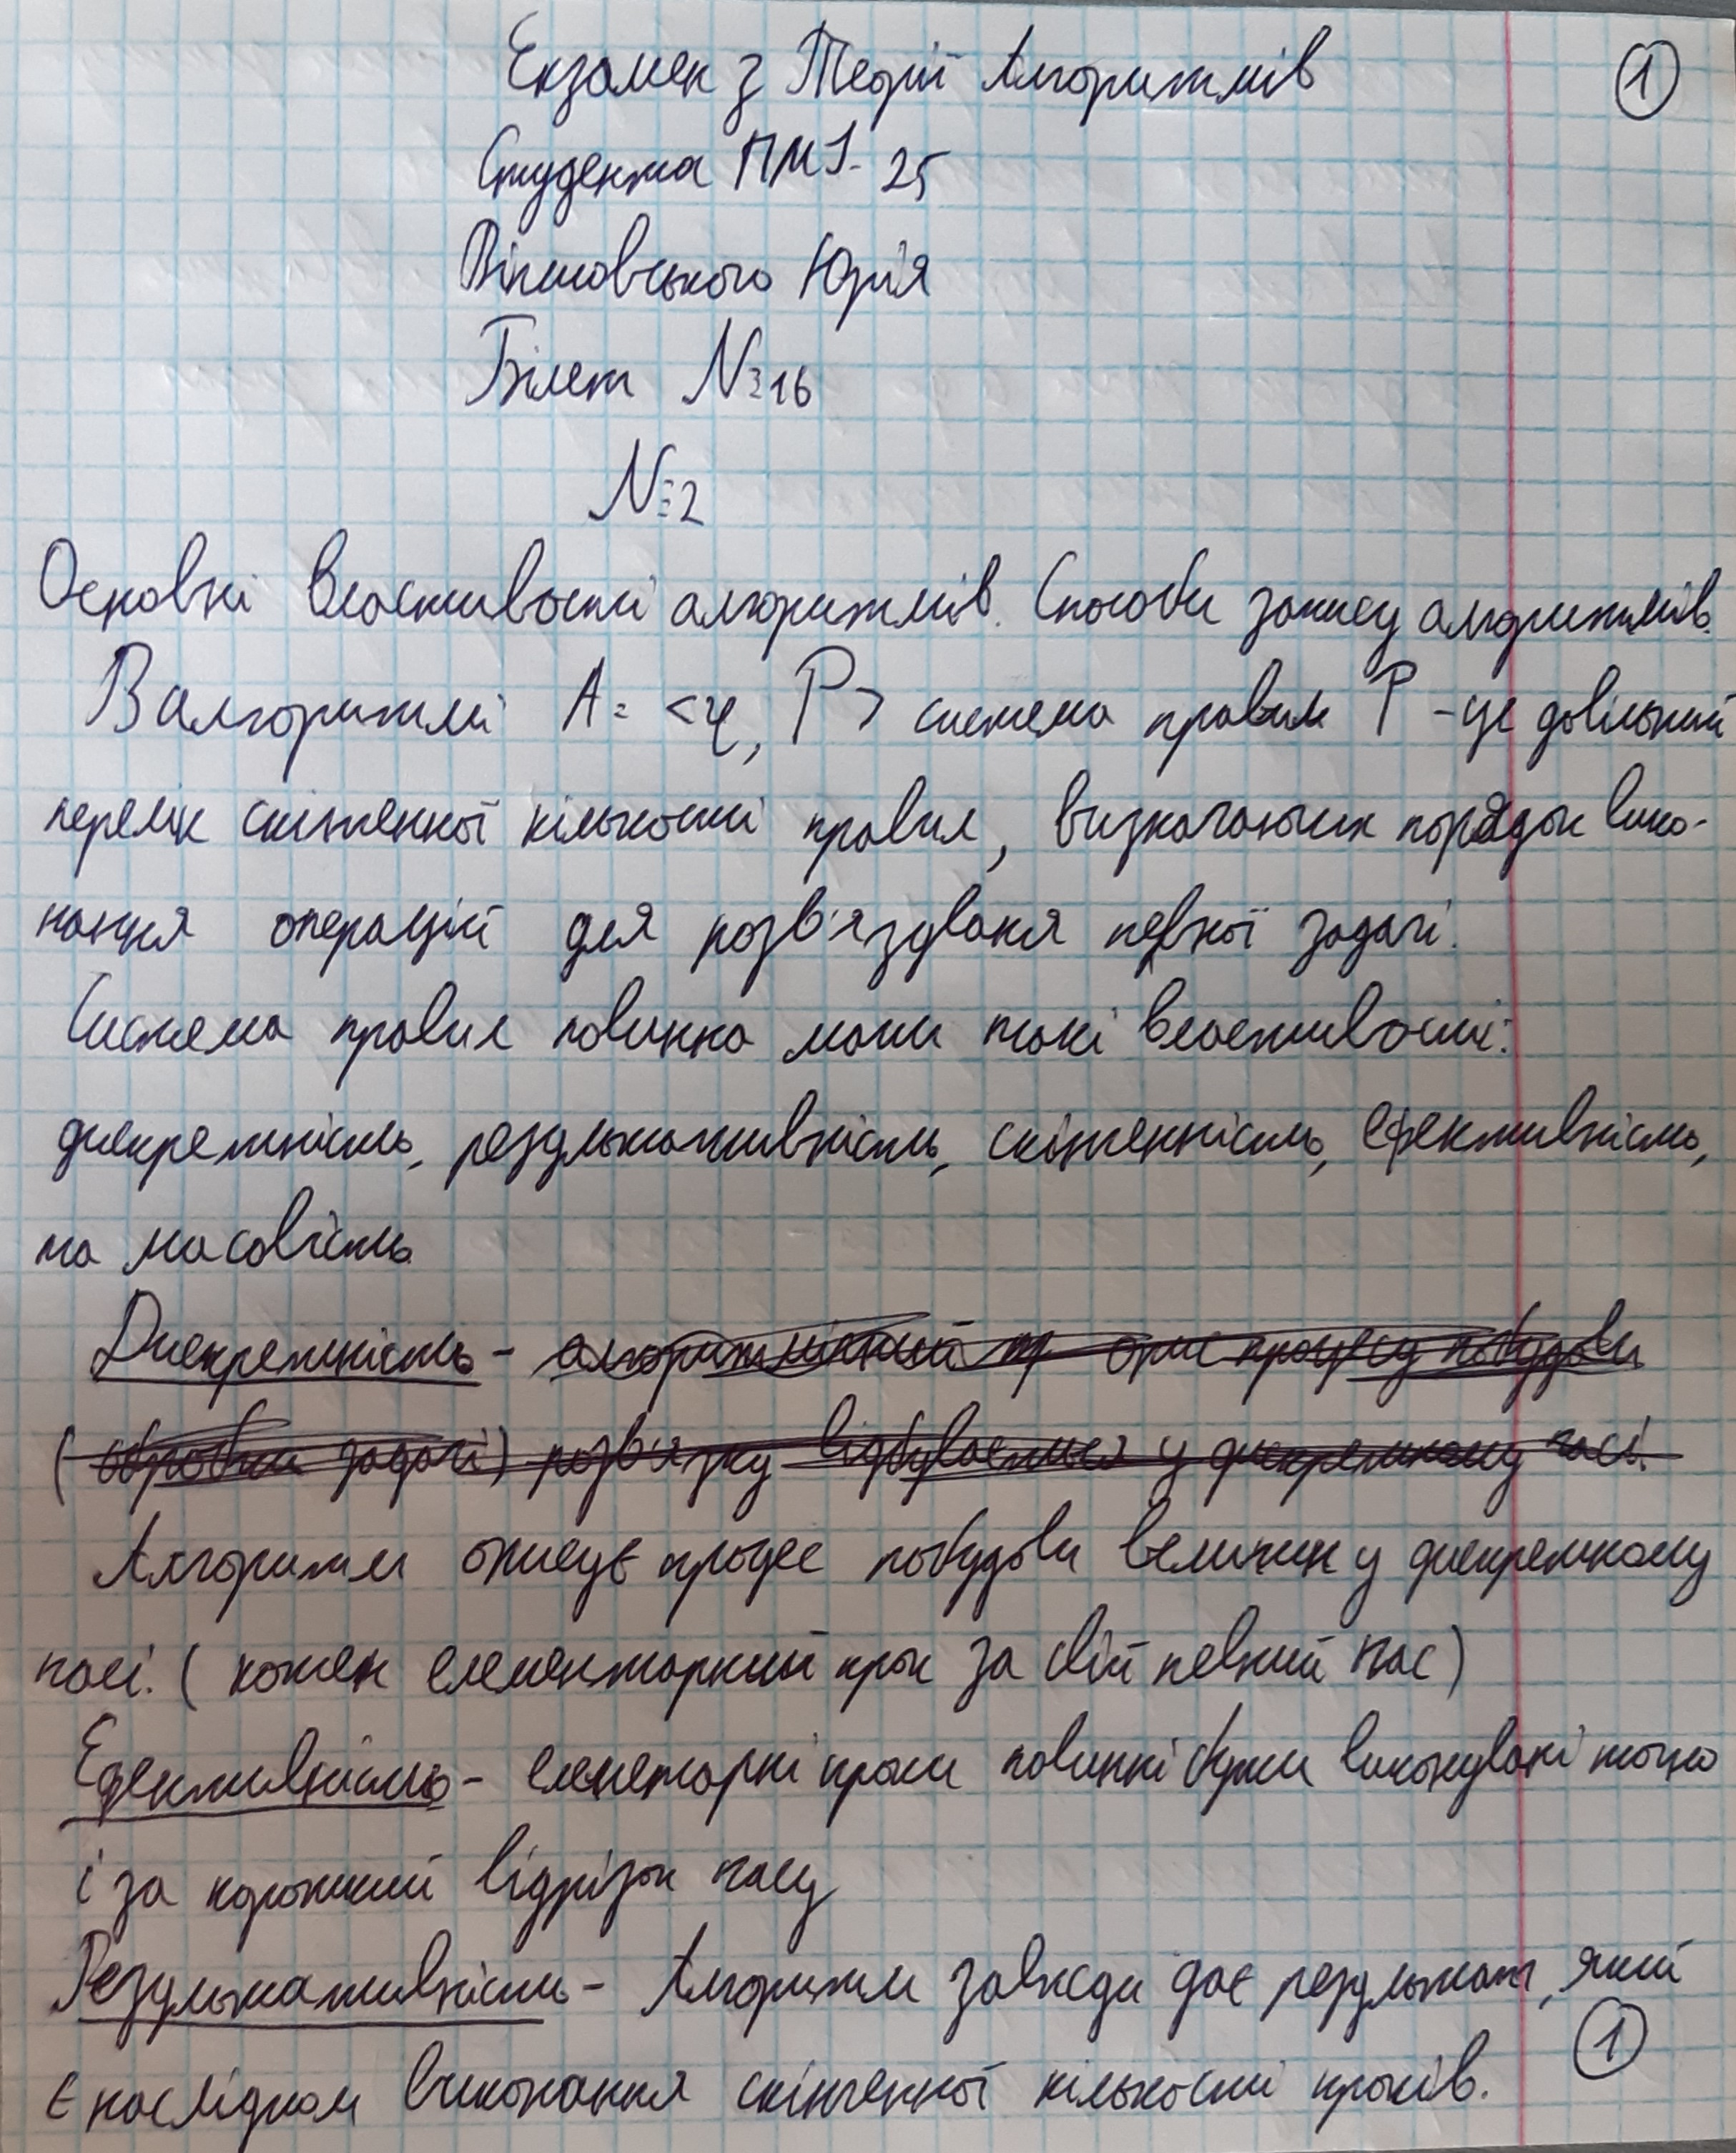 Екзамен з Теорії Алгоритмів
①
Студента ПМІ-25
Юрія
Білет №16
№2
Основні властивості алгоритмів. Способи запису алгоритмів.
В алгоритмі A = <φ, P> система правил P - це довільний
перелік скінченної кількості правил, визначаючих порядок вико-
нання операцій для розв'язуваня певної задачі.
Система правил повинна мати такі властивості:
дискретність, результативність, скінченність, ефективність,
та масовість
Дискретність - алгоритмічний пр опис процесу побудови
(обробки задачі) розв'язку відбувається у дискретному часі.
Алгоритм описує процес побудови величин у дискретному
часі. (кожен елементарний крок за свій певний час)
Ефективність - елеметарні кроки повинні бути виконувані точно
і за короткий відрізок часу
Результативність - Алгоритм завжди дає результат, який
є наслідком виконання скінченної кількості кроків.
①